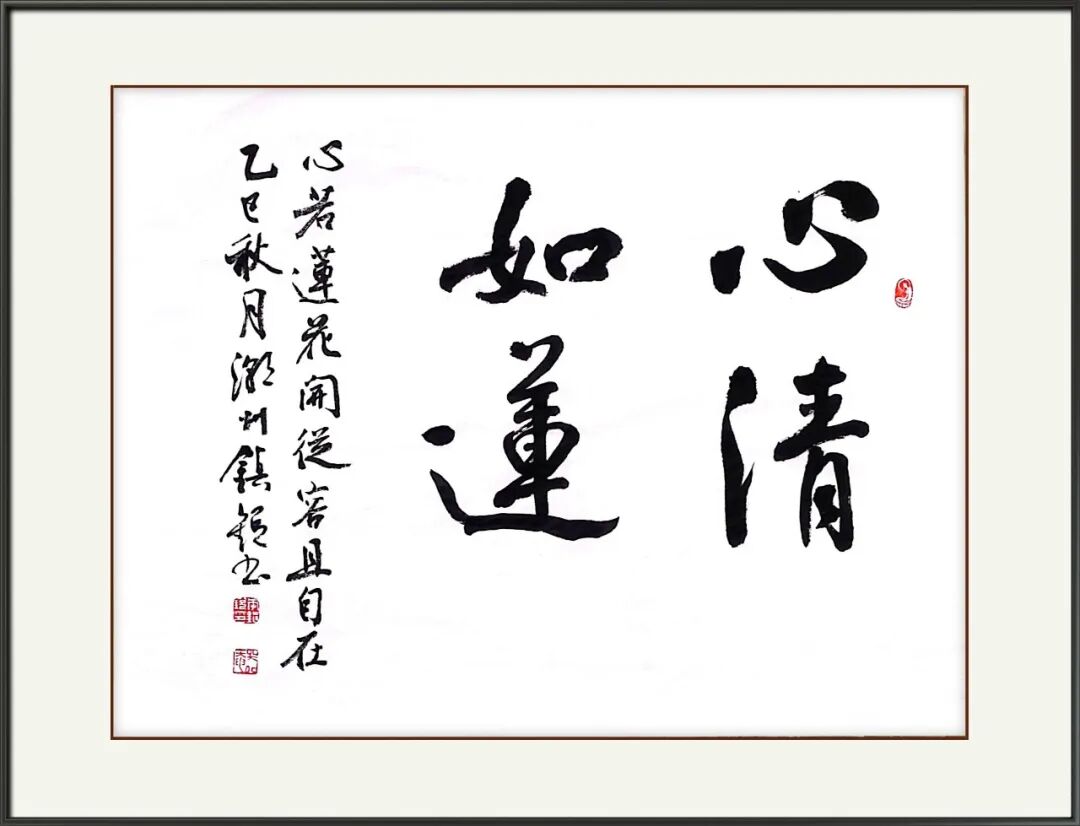 心清
如蓮
心若蓮花開從容且自在
乙巳秋月潮州鎮錦書